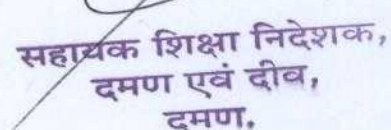 सहायक शिक्षा निदेशक,
दमण एवं दीव,
दमण.